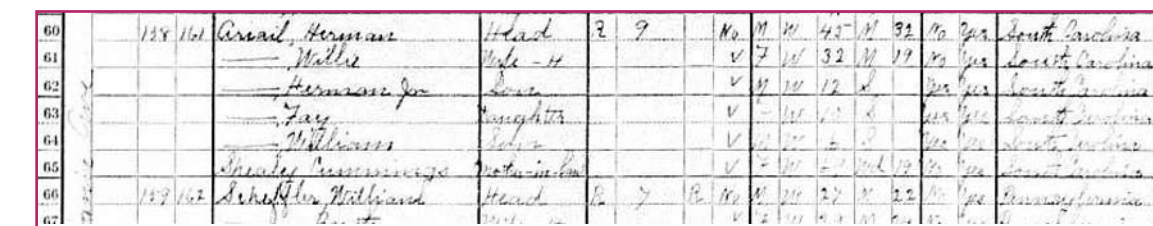 60 138 161 Ariail, Herman Head R 9 No M W 45 M 32 No Yes South Carolina
61 —, Willie Wife - H V F W 32 M 19 No Yes South Carolina
62 —, Herman Jr Son V M W 12 S Yes Yes South Carolina
63 —, Fay Daughter V W 10 S Yes Yes South Carolina
64 —, William Son V M W S Yes Yes South Carolina
65 Shealy Cummings mother-in-law V F W Wd 19 No Yes South Carolina
66 139 162 Scheffler, William Head R 7 R No M W 27 M 22 No Yes Pennsylvania
67 Wife - H V F W 29 M